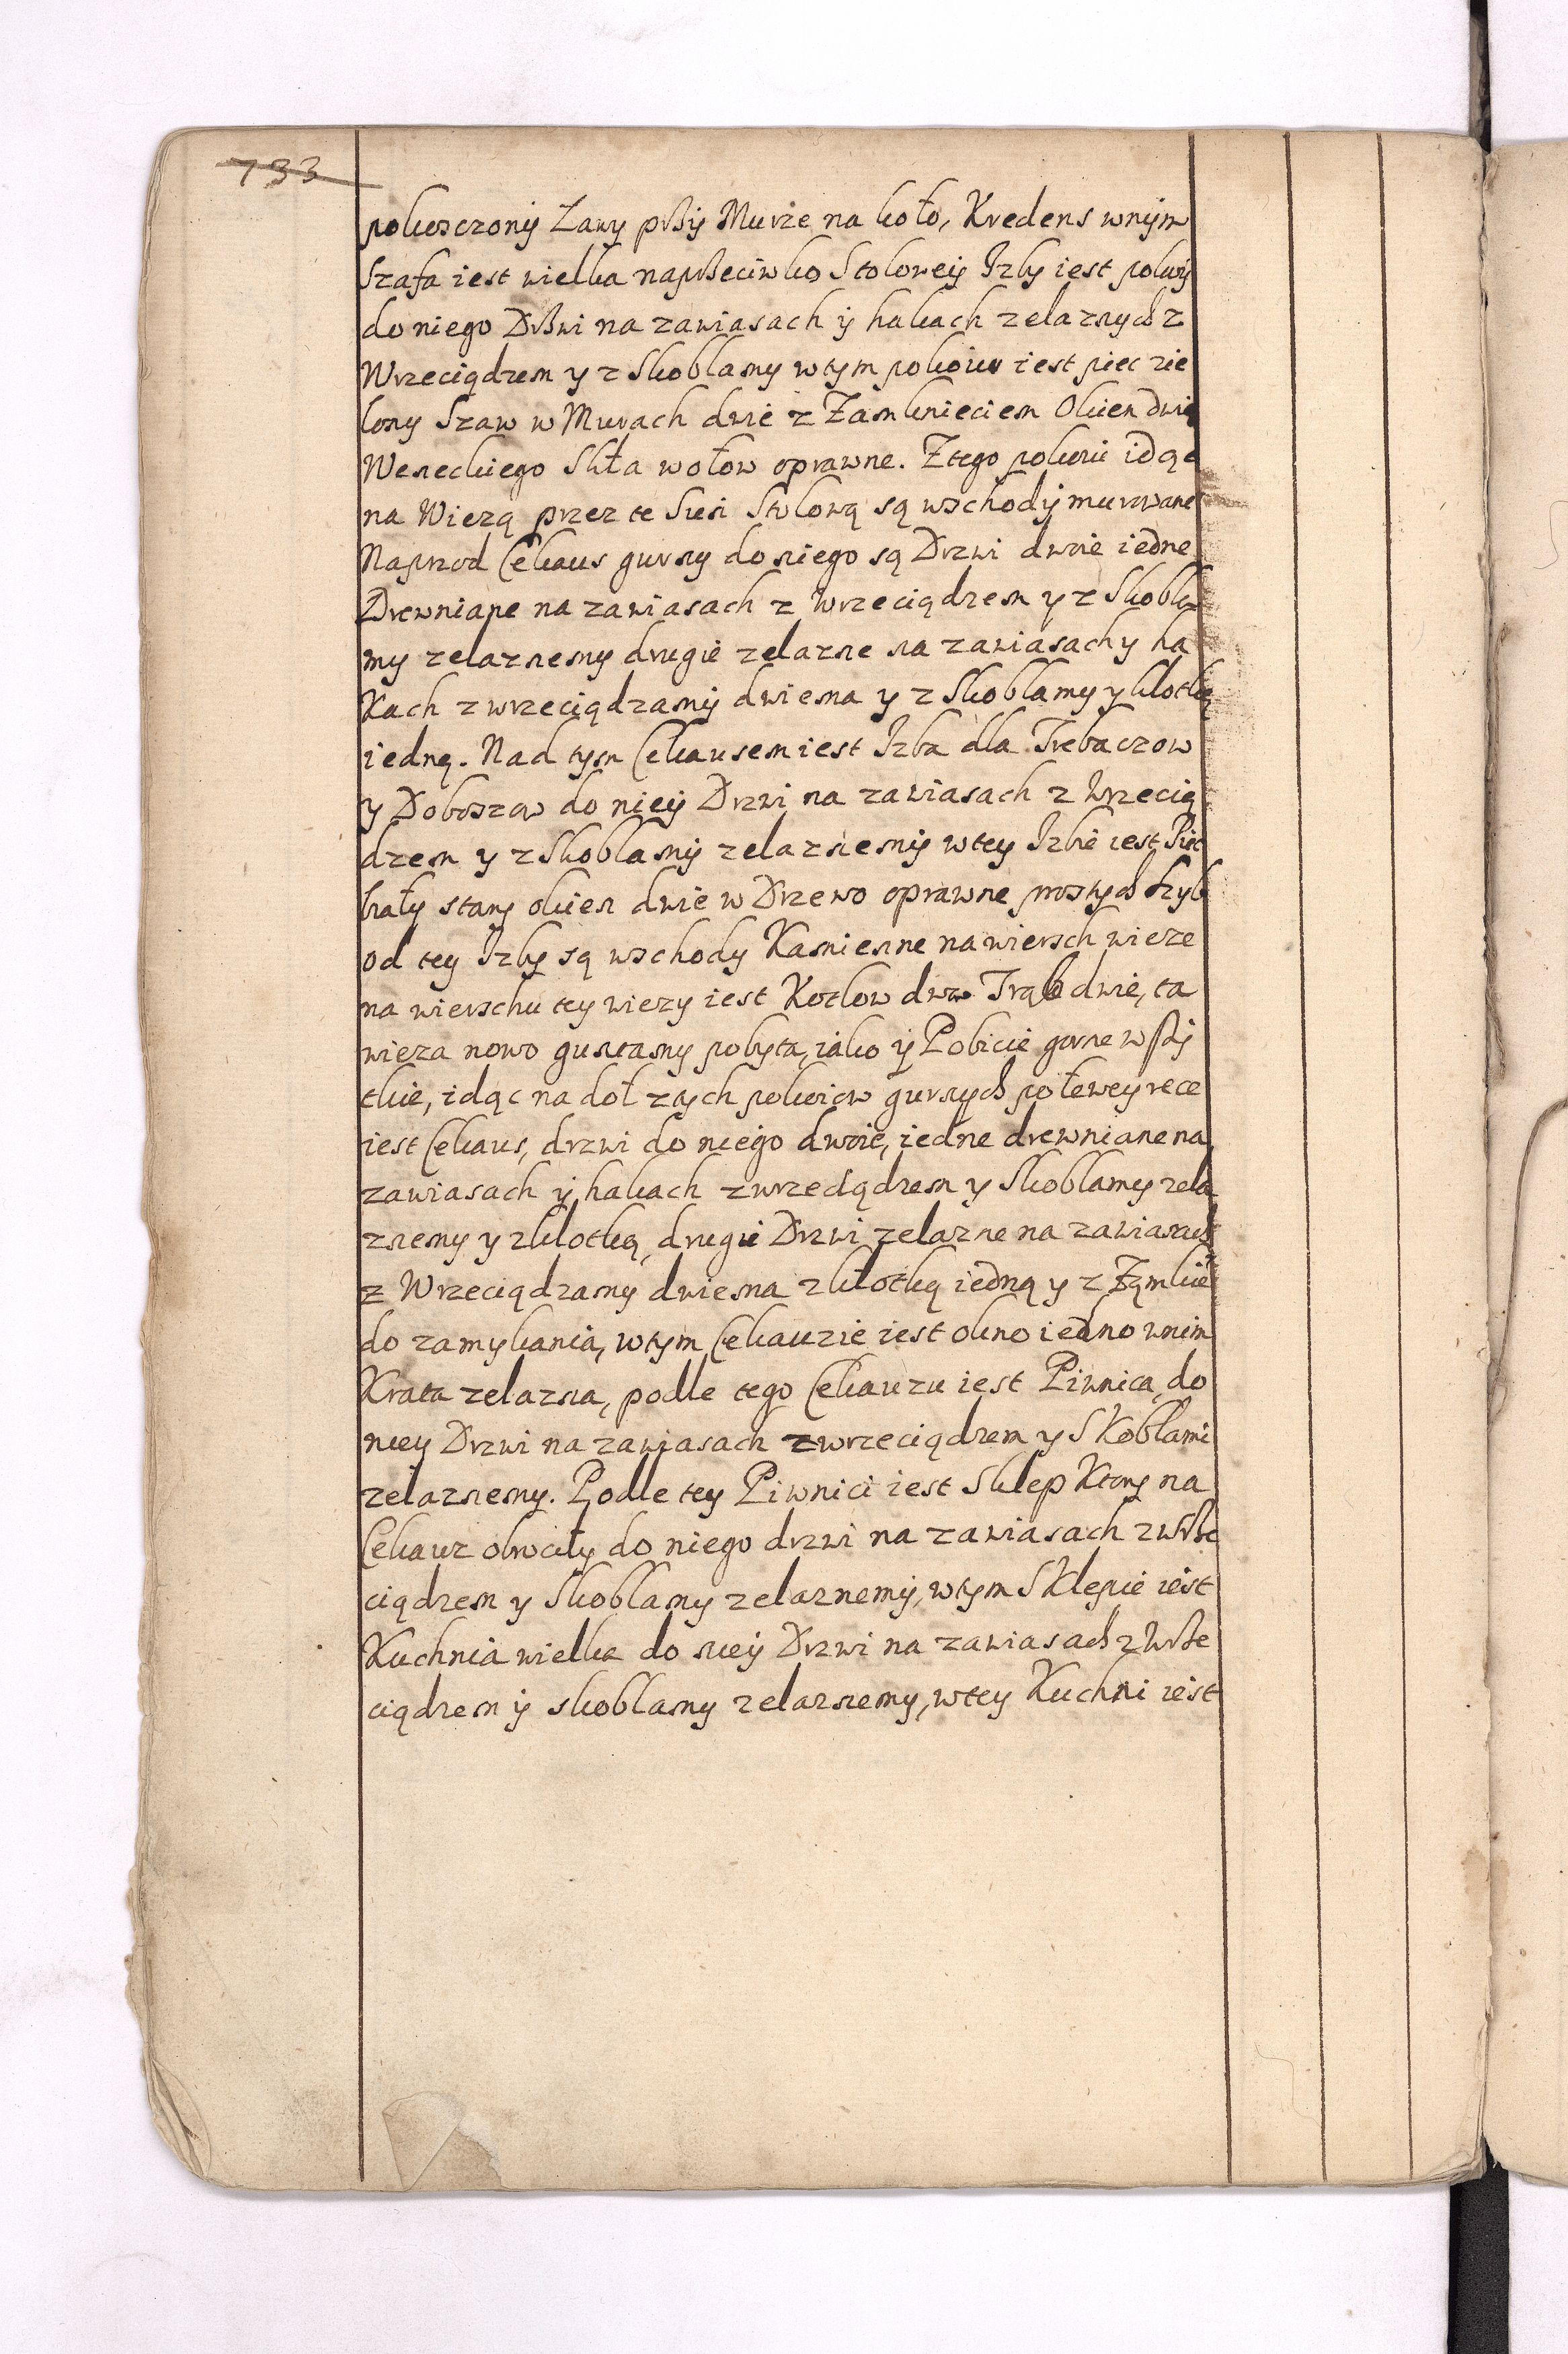 733
pokoszczony Lawy prßy Murze na koło, Kredens wnym
Szafa iest wielka naprßeciwko Stoloweiy Izby iest pokoy
do niego Drßwi na zawiasach ÿ hakach zelaznych z
Wrzeciądzem y z Skoblamy wtym pokoiu iest piec zie
lony Szaw w Murach dwie z Zamknieciem Okien dwie
Weneckiego Skła wołow oprawne. Ztego pokoiu idąc
na Wiezą przez te Sien Stolową są wschodÿ murowane
Naprzod Cekaus gurny do niego są Drzwi dwoie iedne
Drewniane na zawiasach z Wrzeciądzem y z Skobla
my zelaznemy drugie zelazne na zawiasach y ha
Kach z wrzeciądzamÿ dwiema y z Skoblamy y klotką
iedną. Nad tym Cekausem iest Izba dla Trebaczow
y Doboszow do nieÿ Drzwi na zawiasach z Wrzecią
dzem y z Skoblamÿ zelaznemÿ wtey Izbie iest Piec
biały stary okien dwie w Drzewo oprawne prostych Szyb
od tey Izby są wschody Kamienne na wiersch wieze
na wierschu tey wiezy iest Kotlow dwa Trąb dwie, ta
wieza nowo guntamy pobyta, iako ÿ Pobicie gorne wßÿ
tkie, idąc na doł z tych pokoiow gurnych po łewey rece
iest Cekaus, drzwi do niego dwoie, iedne drewniane na
zawiasach ÿ hakach z wrzeciądzem y Skoblamy zela
znemy y z klotką, drugie Drzwi zelazne na zawiasach
z Wrzeciądzamy dwiema z kłotką iedną y z Ząmkie
do zamykania, wtym Cekauzie iest okno iedno wnim
Krata zelazna, podle tego Cekauzu iest Piwnica, do
niey Drzwi na zawiasach z wrzeciądzem y SKoblami
zelaznemy. Podle tey Piwnici iest Sklep Ktory na
Cekauz obrociły do niego drzwi na zawiasach z wrße
ciądzem y Skoblamy zelaznemÿ, wtym SKlepie iest
Kuchnia wielka do nieÿ Drzwi na zawiasach z Wrße
ciądzem ÿ skoblamy zelaznemy, wtey Kuchni iest